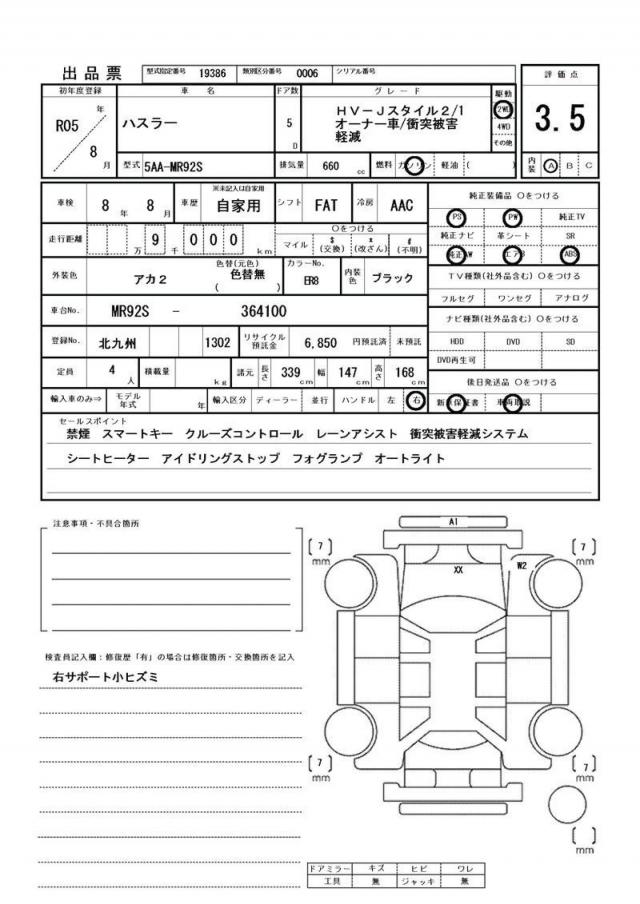 出品票 型式指定番号 19386 類別区分番号 0006 シリアル番号
初年度登録 車名 ドア数 グレード 駆動 評価点
R05 年 8 月 ハスラー 5 D HV-Jスタイル2/1
オーナー車/衝突被害
軽減
2WD
4WD
その他
3.5
型式 5AA-MR92S 排気量 660 cc 燃料 ガソリン 軽油 ( ) 内装 A B C
車検 8 年 8 月 車歴 ※未記入は自家用 自家用 シフト FAT 冷房 AAC 純正装備品 〇をつける
走行距離 万 9 千 0 0 0 km 〇をつける
マイル $(交換) x(改ざん) #(不明)
PS PW 純正TV
純正ナビ 革シート SR
純正AW エアB ABS
外装色 アカ2 色替(元色) 色替無 ( ) カラーNo. ER8 内装色 ブラック
TV種類(社外品含む) 〇をつける
フルセグ ワンセグ アナログ
車台No. MR92S - 364100
ナビ種類(社外品含む) 〇をつける
登録No. 北九州 1302 リサイクル預託金 6,850 円預託済 未預託
HDD DVD SD
DVD再生可
定員 4 人 積載量 kg 諸元 長さ 339 cm 幅 147 cm 高さ 168 cm
後日発送品 〇をつける
輸入車のみ⇒ モデル年式 年 輸入区分 ディーラー 並行 ハンドル 左 右
新車保証書 車両取説
セールスポイント
禁煙 スマートキー クルーズコントロール レーンアシスト 衝突被害軽減システム
シートヒーター アイドリングストップ フォグランプ オートライト
注意事項・不具合箇所
A1
[7] mm [7] mm
XX W2
検査員記入欄:修復歴「有」の場合は修復箇所・交換箇所を記入
右サポート小ヒズミ
[7] mm [7] mm
[ ] mm
ドアミラー キズ ヒビ ワレ
工具 無 ジャッキ 無